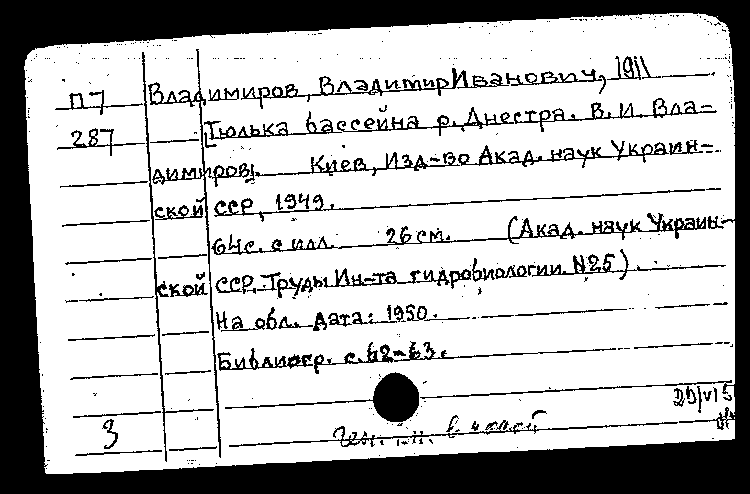 П7 Владимиров, Владимир Иванович, 1911
287 Тюлька бассейна р. Днестра. В. И. Вла-
димиров. Киев, Изд-во Акад. наук Украин-
ской ССР, 1949.
64с. с илл. 26 см. (Акад. наук Украин-
ской ССР. Труды Ин-та гидробиологии. N25).
На обл. дата: 1950.
Библиогр. с. 62-63.
3